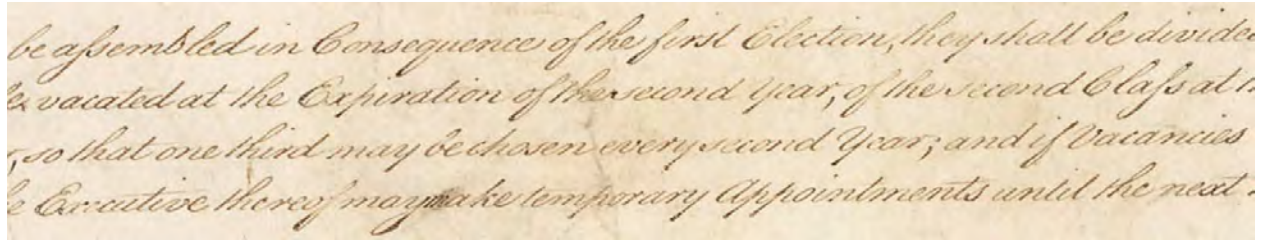 be aſsembled in Consequence of the first Election, they shall be divided
be vacated at the Expiration of the second Year, of the second Claſs at
so that one third may be chosen every second Year; and if Vacancies
Executive thereof may make temporary Appointments until the next